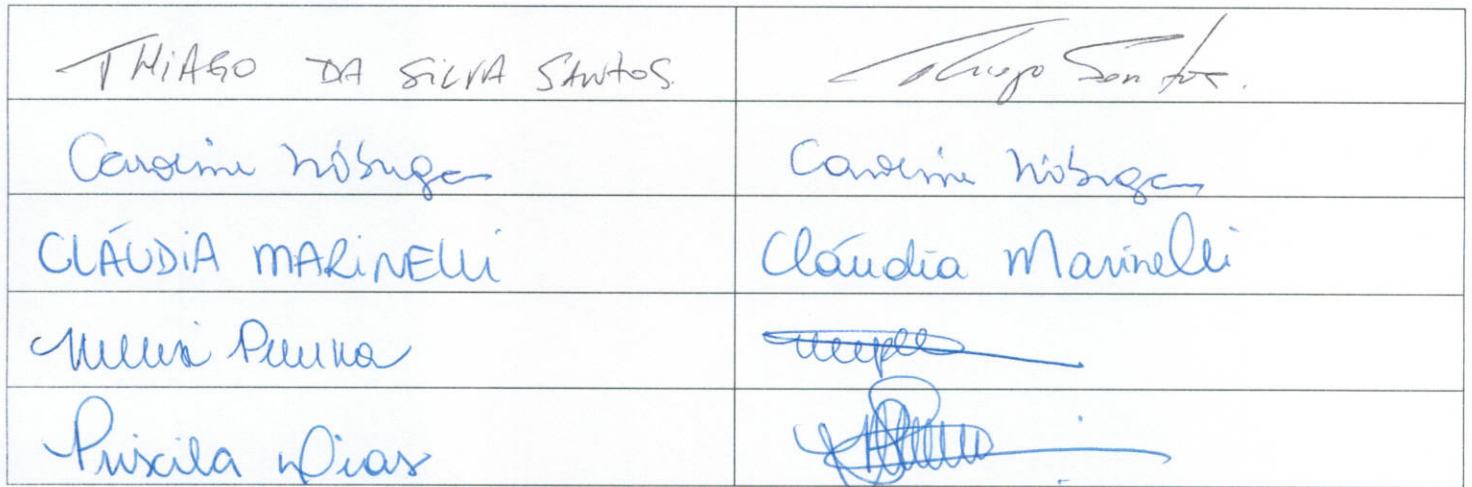 THIAGO DA SILVA SANTOS. Thiago Santos.
Caroline Nóbrega Caroline Nóbrega
CLÁUDIA MARINELLI Cláudia Marinelli
Priscila Dias